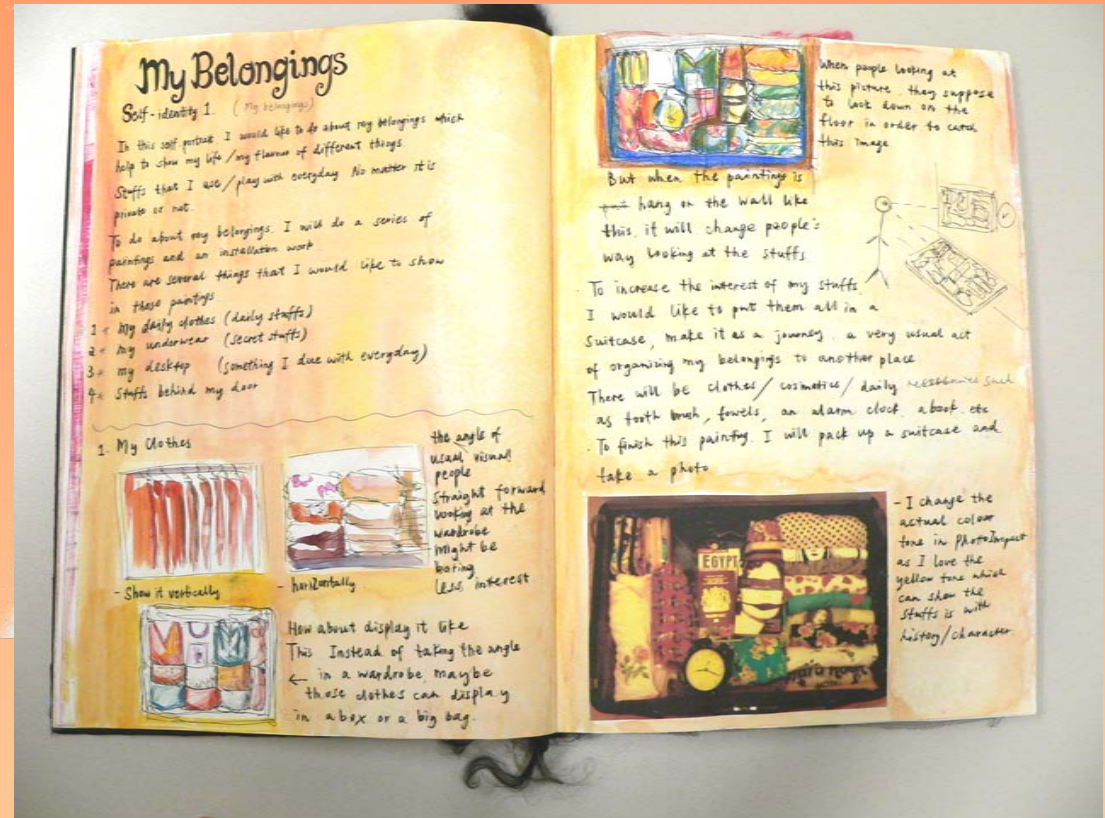 My Belongings
Self-identity 1. (My belongings)
In this self portrait I would like to do about my belongings which
help to show my life/my flavour of different things.
Stuffs that I use/play with everyday. No matter it is
private or not.
To do about my belongings, I will do a series of
paintings and an installation work
There are several things that I would like to show
in these paintings
1* my daily clothes (daily stuffs)
2* my underwear (secret stuffs)
3* my desktop (something I due with everyday)
4* Stuffs behind my door
1. My Clothes
the angle of
usual visual
people
straight forward
looking at the
wardrobe
might be
boring
less interest.
- Show it vertically
- horizontally
How about display it like
This Instead of taking the angle
← in a wardrobe, maybe
those clothes can display
in a box or a big bag.
When people looking at
this picture, they suppose
to look down on the
floor in order to catch
this image
But when the paintings is
hang on the wall like
this, it will change people's
way looking at the stuffs
- To increase the interest of my stuffs,
I would like to put them all in a
suitcase, make it as a journey, a very usual act
of organizing my belongings to another place.
There will be clothes/cosmetics/daily such
as tooth brush, towels, an alarm clock, a book. etc
- To finish this painting, I will pack up a suitcase and
take a photo
EGYPT
- I change the
actual colour
tone in PhotoImpact
as I love the
yellow tone which
can show the
stuffs is with
history/character.